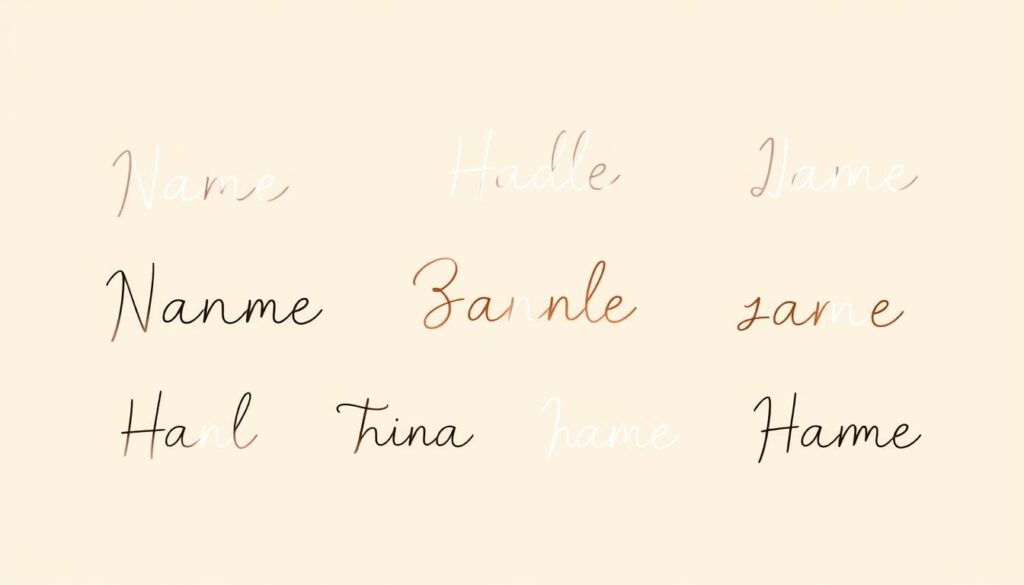 Name Hadle Name
Nanme Zannle zarne
Hanl Tina hame Hamme